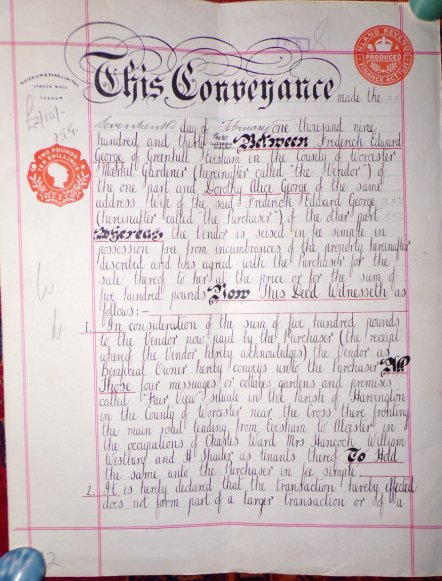 WATERLOW & SONS LIMITED
LONDON WALL
LONDON
INLAND REVENUE
PRODUCED
FINANCE ACT
£2/10/-
TWO POUNDS
TEN SHILLINGS
This Conveyance made the
Seventeenth day of February one thousand nine
hundred and thirty Between Frederick Edward
George of Greenhill Evesham in the County of Worcester
Market Gardener (hereinafter called "the Vendor") of
the one part and Dorothy Alice George of the same
address Wife of the said Frederick Edward George
(hereinafter called "the Purchaser") of the other part
Whereas the Vendor is seised in fee simple in
possession free from incumbrances of the property hereinafter
described and has agreed with the Purchaser for the
sale thereof to her at the price or for the sum of
five hundred pounds Now This Deed Witnesseth as
follows:—
1. In consideration of the sum of five hundred pounds
to the Vendor now paid by the Purchaser (the receipt
whereof the Vendor hereby acknowledges) the Vendor as
Beneficial Owner hereby conveys unto the Purchaser All
Those four messuages or cottages gardens and premises
called "Fair View" situate in the Parish of Harvington
in the County of Worcester near the Cross there fronting
the main road leading from Evesham to Alcester in
the occupations of Charles Ward Mrs Hancock William
Westbury and H. Shailer as tenants thereof To Hold
the same unto the Purchaser in fee simple
2. It is hereby declared that the transaction hereby effected
does not form part of a larger transaction or of a